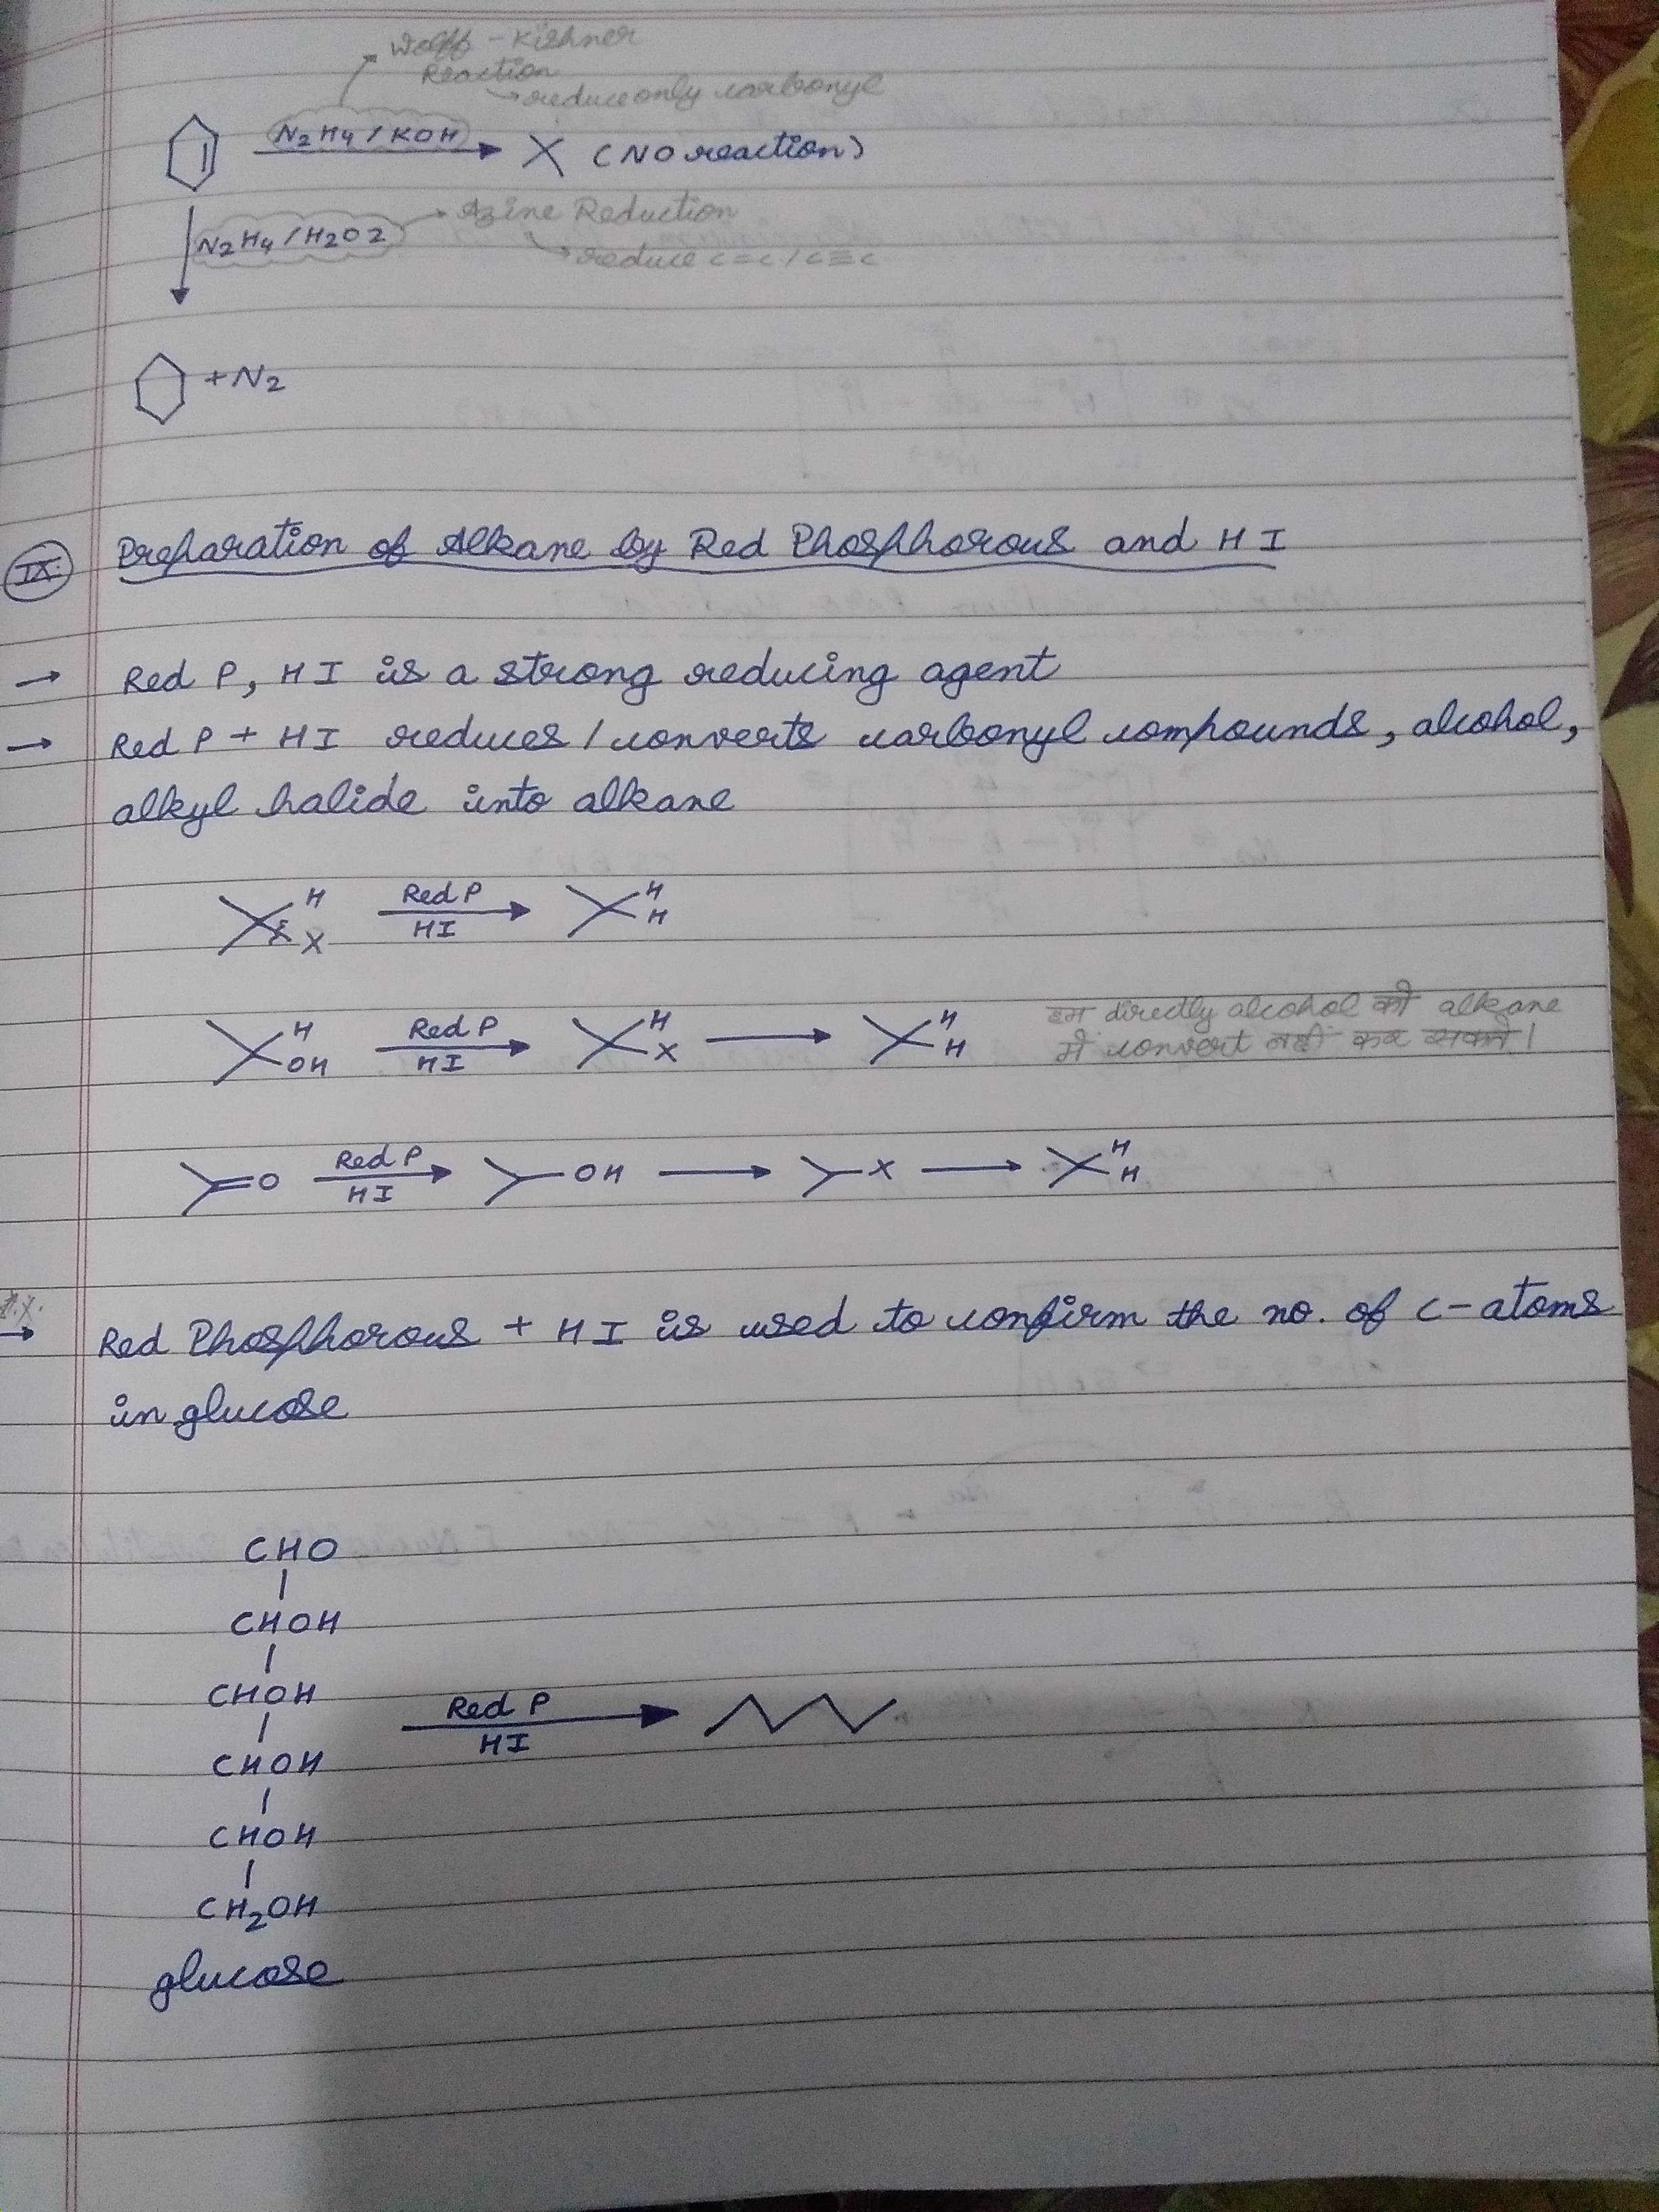 Wolff - Kishner
Reaction
→ reduce only carbonyl
N2H4 / KOH → X (NO reaction)
N2H4 / H2O2 → Azine Reduction
→ reduce C=C / C≡C
+ N2
IX. Preparation of Alkane by Red Phosphorous and HI
→ Red P, HI is a strong reducing agent
→ Red P + HI reduces / converts carbonyl compounds, alcohol,
alkyl halide into alkane
H X Red P HI → H H
H OH Red P HI → H X → H H
हम directly alcohol को alkane
में convert नहीं कर सकते।
=O Red P HI → OH → X → H H
→ Red Phosphorous + HI is used to confirm the no. of C-atoms
in glucose
CHO
CHOH
CHOH
CHOH
CHOH
CH2OH
Red P
HI
glucose